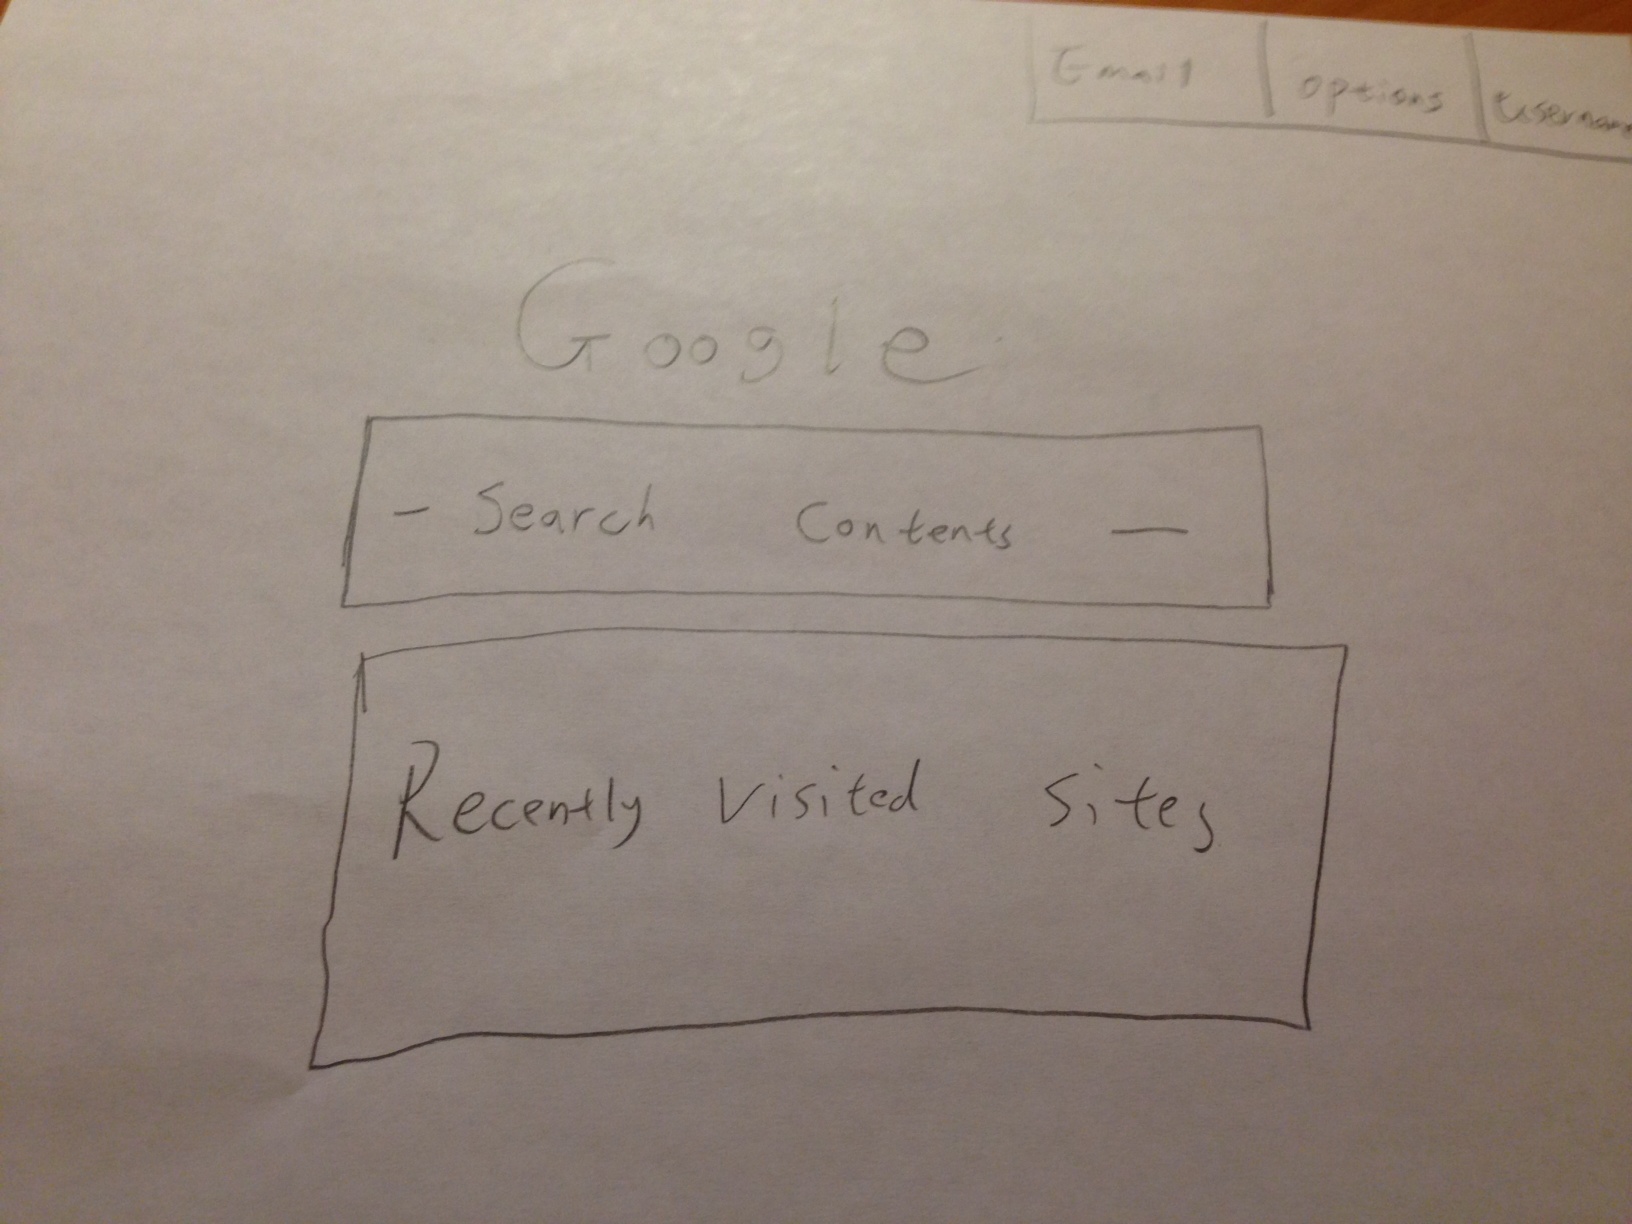 Email options Usernam
Google
- Search Contents —
Recently visited sites